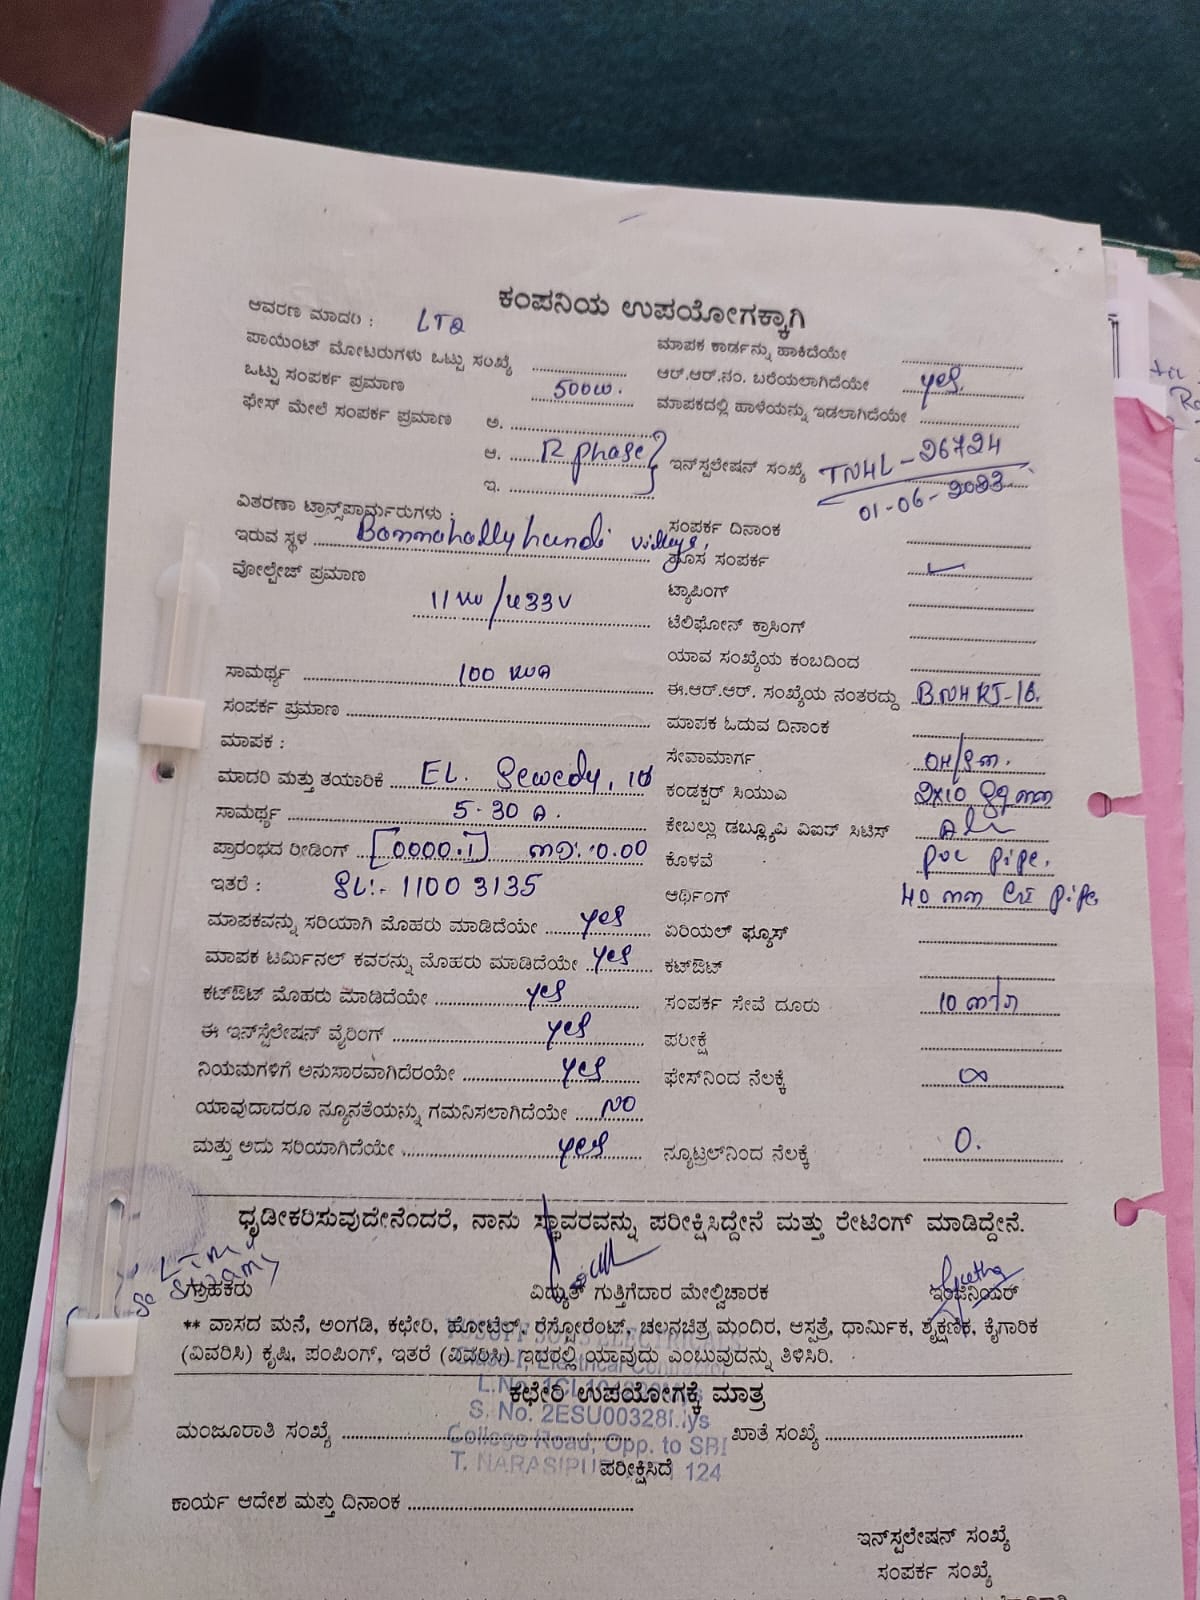 ಕಂಪನಿಯ ಉಪಯೋಗಕ್ಕಾಗಿ
ಆವರಣ ಮಾದರಿ : LT2
ಪಾಯಿಂಟ್ ಮೋಟರುಗಳು ಒಟ್ಟು ಸಂಖ್ಯೆ
ಒಟ್ಟು ಸಂಪರ್ಕ ಪ್ರಮಾಣ 500W.
ಫೇಸ್ ಮೇಲೆ ಸಂಪರ್ಕ ಪ್ರಮಾಣ ಅ.
ಆ. R phase
ಇ.
ವಿತರಣಾ ಟ್ರಾನ್ಸ್‌ಪಾರ್ಮರುಗಳು :
ಇರುವ ಸ್ಥಳ Bommahallyhundi
ವೋಲ್ಟೇಜ್ ಪ್ರಮಾಣ
11 KV/433V
ಸಾಮರ್ಥ್ಯ 100 KVA
ಸಂಪರ್ಕ ಪ್ರಮಾಣ
ಮಾಪಕ :
ಮಾದರಿ ಮತ್ತು ತಯಾರಿಕೆ EL. Sewedy, 1Φ
ಸಾಮರ್ಥ್ಯ 5-30 A.
ಪ್ರಾರಂಭದ ರೀಡಿಂಗ್ [0000.1] MD:- 0.00
ಇತರೆ : SL:- 11003135
ಮಾಪಕವನ್ನು ಸರಿಯಾಗಿ ಮೊಹರು ಮಾಡಿದೆಯೇ yes
ಮಾಪಕ ಟರ್ಮಿನಲ್ ಕವರನ್ನು ಮೊಹರು ಮಾಡಿದೆಯೇ yes
ಕಟ್‌ಔಟ್ ಮೊಹರು ಮಾಡಿದೆಯೇ yes
ಈ ಇನ್‌ಸ್ಟೆಲೇಷನ್ ವೈರಿಂಗ್ yes
ನಿಯಮಗಳಿಗೆ ಅನುಸಾರವಾಗಿದೆರಯೇ yes
ಯಾವುದಾದರೂ ನ್ಯೂನತೆಯನ್ನು ಗಮನಿಸಲಾಗಿದೆಯೇ NO
ಮತ್ತು ಅದು ಸರಿಯಾಗಿದೆಯೇ yes
ಮಾಪಕ ಕಾರ್ಡನ್ನು ಹಾಕಿದೆಯೇ
ಆರ್.ಆರ್.ನಂ. ಬರೆಯಲಾಗಿದೆಯೇ yes.
ಮಾಪಕದಲ್ಲಿ ಹಾಳೆಯನ್ನು ಇಡಲಾಗಿದೆಯೇ
ಇನ್‌ಸ್ಟಲೇಷನ್ ಸಂಖ್ಯೆ TNHL-26724
01-06-2023
ಸಂಪರ್ಕ ದಿನಾಂಕ
ಹೊಸ ಸಂಪರ್ಕ
ಟ್ಯಾಪಿಂಗ್
ಟೆಲಿಫೋನ್ ಕ್ರಾಸಿಂಗ್
ಯಾವ ಸಂಖ್ಯೆಯ ಕಂಬದಿಂದ
ಈ.ಆರ್.ಆರ್. ಸಂಖ್ಯೆಯ ನಂತರದ್ದು BNHKJ-16.
ಮಾಪಕ ಓದುವ ದಿನಾಂಕ
ಸೇವಾಮಾರ್ಗ OH/SM.
ಕಂಡಕ್ಟರ್ ಸಿಯುವಿ 2X10 Sqmm
ಕೇಬಲ್ಲು ಡಬ್ಲ್ಯೂಪಿ ವಿಐಆರ್ ಸಿಟಿಸ್
ಕೊಳವೆ PVC pipe.
ಆರ್ಥಿಂಗ್ 40 mm GI pipe
ಏರಿಯಲ್ ಫ್ಯೂಸ್
ಕಟ್‌ಔಟ್
ಸಂಪರ್ಕ ಸೇವೆ ದೂರು
ಪರೀಕ್ಷೆ
ಫೇಸ್‌ನಿಂದ ನೆಲಕ್ಕೆ ∞
ನ್ಯೂಟ್ರಲ್‌ನಿಂದ ನೆಲಕ್ಕೆ 0.
ಧೃಡೀಕರಿಸುವುದೇನೆಂದರೆ, ನಾನು ಸ್ಥಾವರವನ್ನು ಪರೀಕ್ಷಿಸಿದ್ದೇನೆ ಮತ್ತು ರೇಟಿಂಗ್ ಮಾಡಿದ್ದೇನೆ.
ಗ್ರಾಹಕರು ವಿದ್ಯುತ್ ಗುತ್ತಿಗೆದಾರ ಮೇಲ್ವಿಚಾರಕ ಇಂಜಿನಿಯರ್
** ವಾಸದ ಮನೆ, ಅಂಗಡಿ, ಕಛೇರಿ, ಹೋಟೆಲ್, ರೆಸ್ಟೋರೆಂಟ್, ಚಲನಚಿತ್ರ ಮಂದಿರ, ಆಸ್ಪತ್ರೆ, ಧಾರ್ಮಿಕ, ಶೈಕ್ಷಣಿಕ, ಕೈಗಾರಿಕ
(ವಿವರಿಸಿ) ಕೃಷಿ, ಪಂಪಿಂಗ್, ಇತರೆ (ವಿವರಿಸಿ) ಇದರಲ್ಲಿ ಯಾವುದು ಎಂಬುವುದನ್ನು ತಿಳಿಸಿರಿ.
ಕಛೇರಿ ಉಪಯೋಗಕ್ಕೆ ಮಾತ್ರ
S. No. 2ESU00328
ಮಂಜೂರಾತಿ ಸಂಖ್ಯೆ ಖಾತೆ ಸಂಖ್ಯೆ
College Road, Opp. to SRI
ಪರೀಕ್ಷಿಸಿದೆ
T. NARASIPU 124
ಕಾರ್ಯ ಆದೇಶ ಮತ್ತು ದಿನಾಂಕ
ಇನ್‌ಸ್ಟಲೇಷನ್ ಸಂಖ್ಯೆ
ಸಂಪರ್ಕ ಸಂಖ್ಯೆ